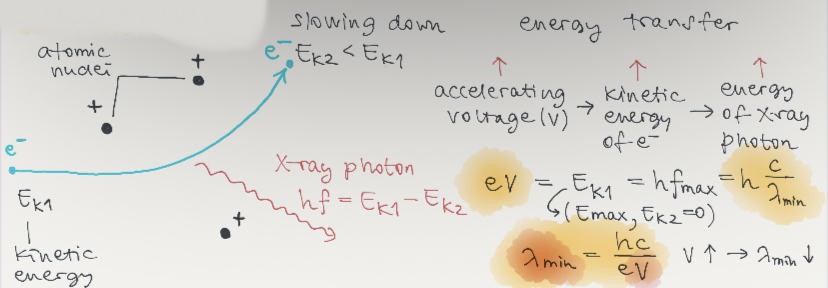 slowing down
e⁻ E_K2 < E_K1
atomic
nuclei
+
+
e⁻
E_K1
kinetic
energy
X-ray photon
hf = E_K1 − E_K2
+
energy transfer
↑ ↑ ↑
accelerating voltage (V) → kinetic energy of e⁻ → energy of X-ray photon
eV = E_K1 = hf_max = h c/λ_min
(E_max, E_K2=0)
λ_min = hc/eV V ↑ → λ_min ↓